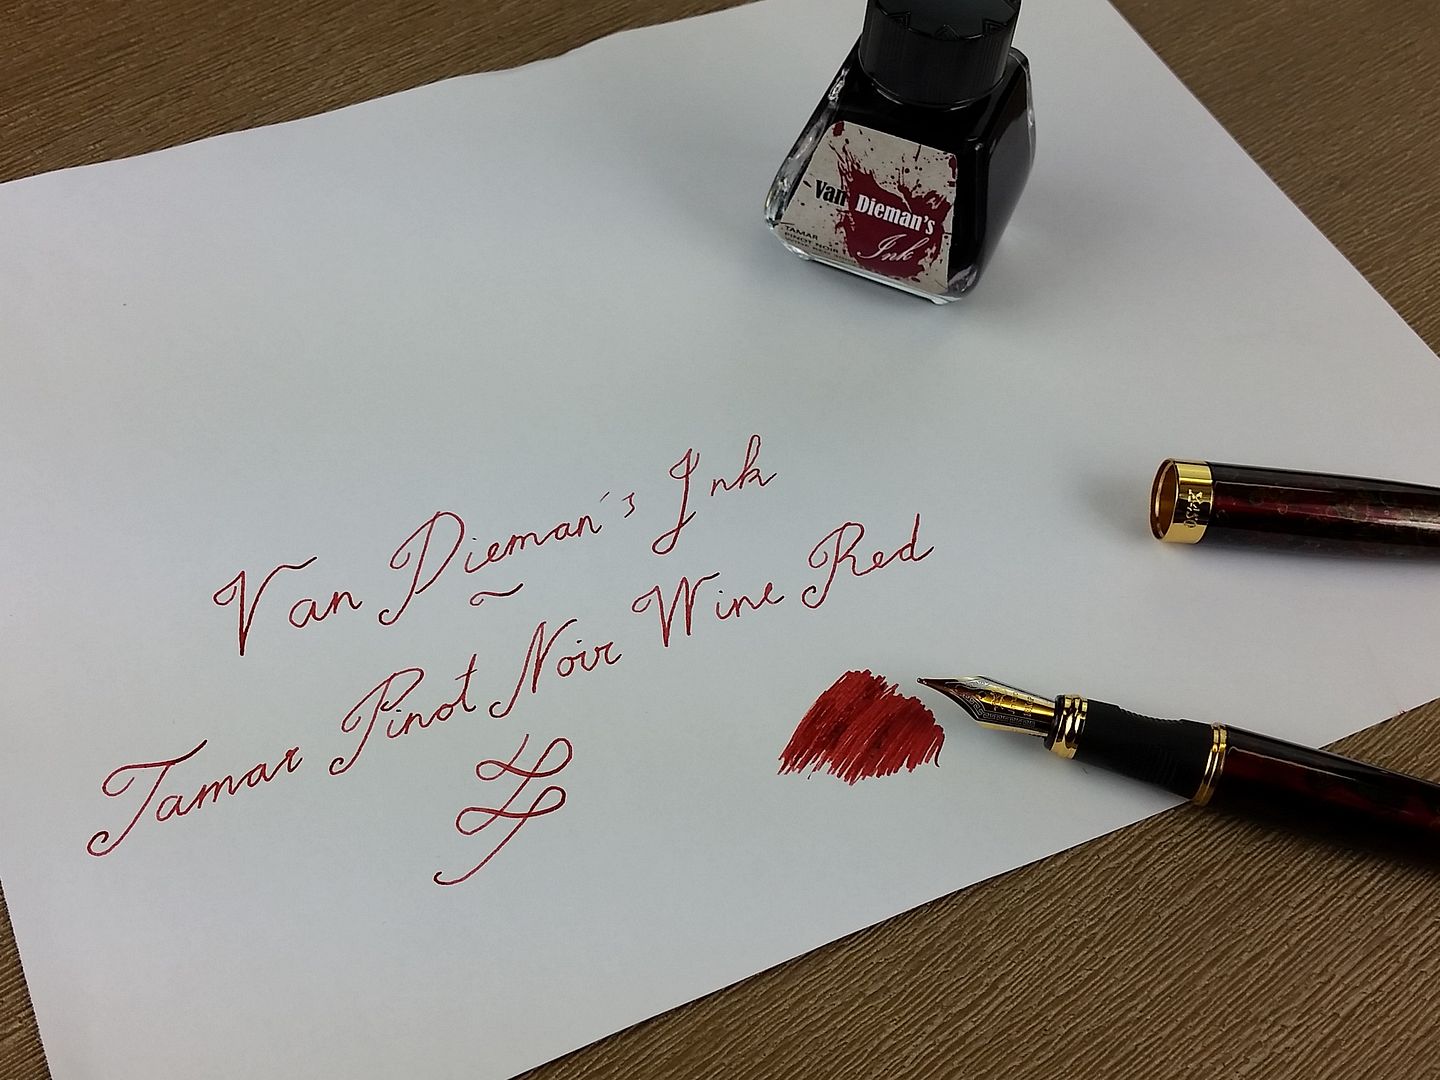 Van Dieman's
Ink
TAMAR
PINOT NOIR
Van Dieman's Ink
~
Tamar Pinot Noir Wine Red